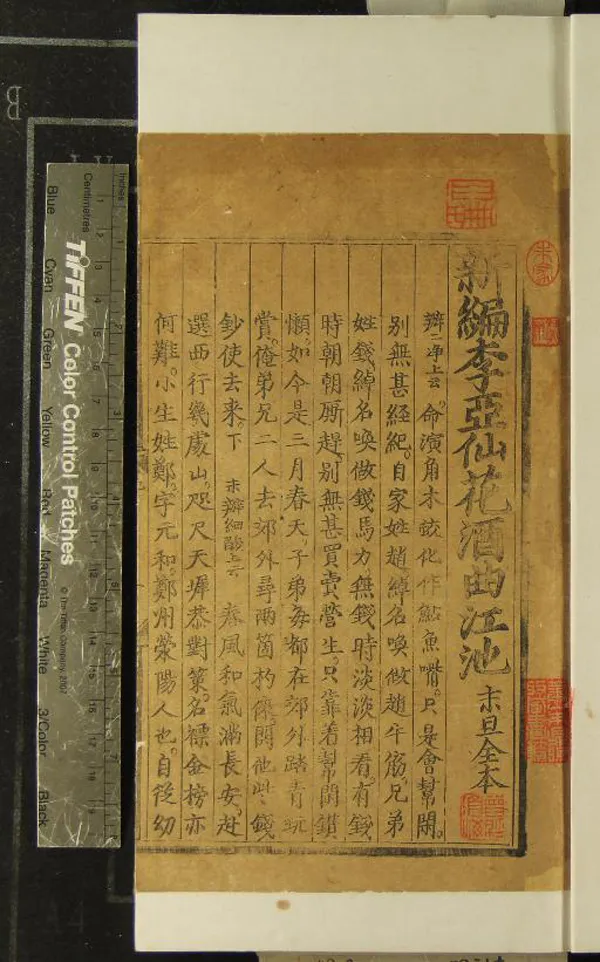 新編李亞仙花酒曲江池 末旦全本
辨二淨上云。命演角木蛟化作鮎魚嘴。只是會幫閑。
別無甚經紀。自家姓趙綽名喚做趙牛筋。兄弟
姓錢綽名喚做錢馬力。無錢時淡淡相看。有錢
時朝朝厮趕。別無甚買賣營生。只靠着幫閑鑽
懶。如今是三月春天。子弟每都在郊外踏青玩
賞。俺弟兄二人去郊外尋兩箇杓俫。閗他些錢
鈔使去來。下 末辨細酸上云 春風和氣滿長安。赴
選西行幾處山。咫尺天墀恭對策。名標金榜亦
何難。小生姓鄭。字元和。鄭州滎陽人也。自從幼
Inches
Centimetres
TIFFEN Color Control Patches
© The Tiffen Company, 2007
Blue
Cyan
Green
Yellow
Red
Magenta
White
3/Color
Black
B